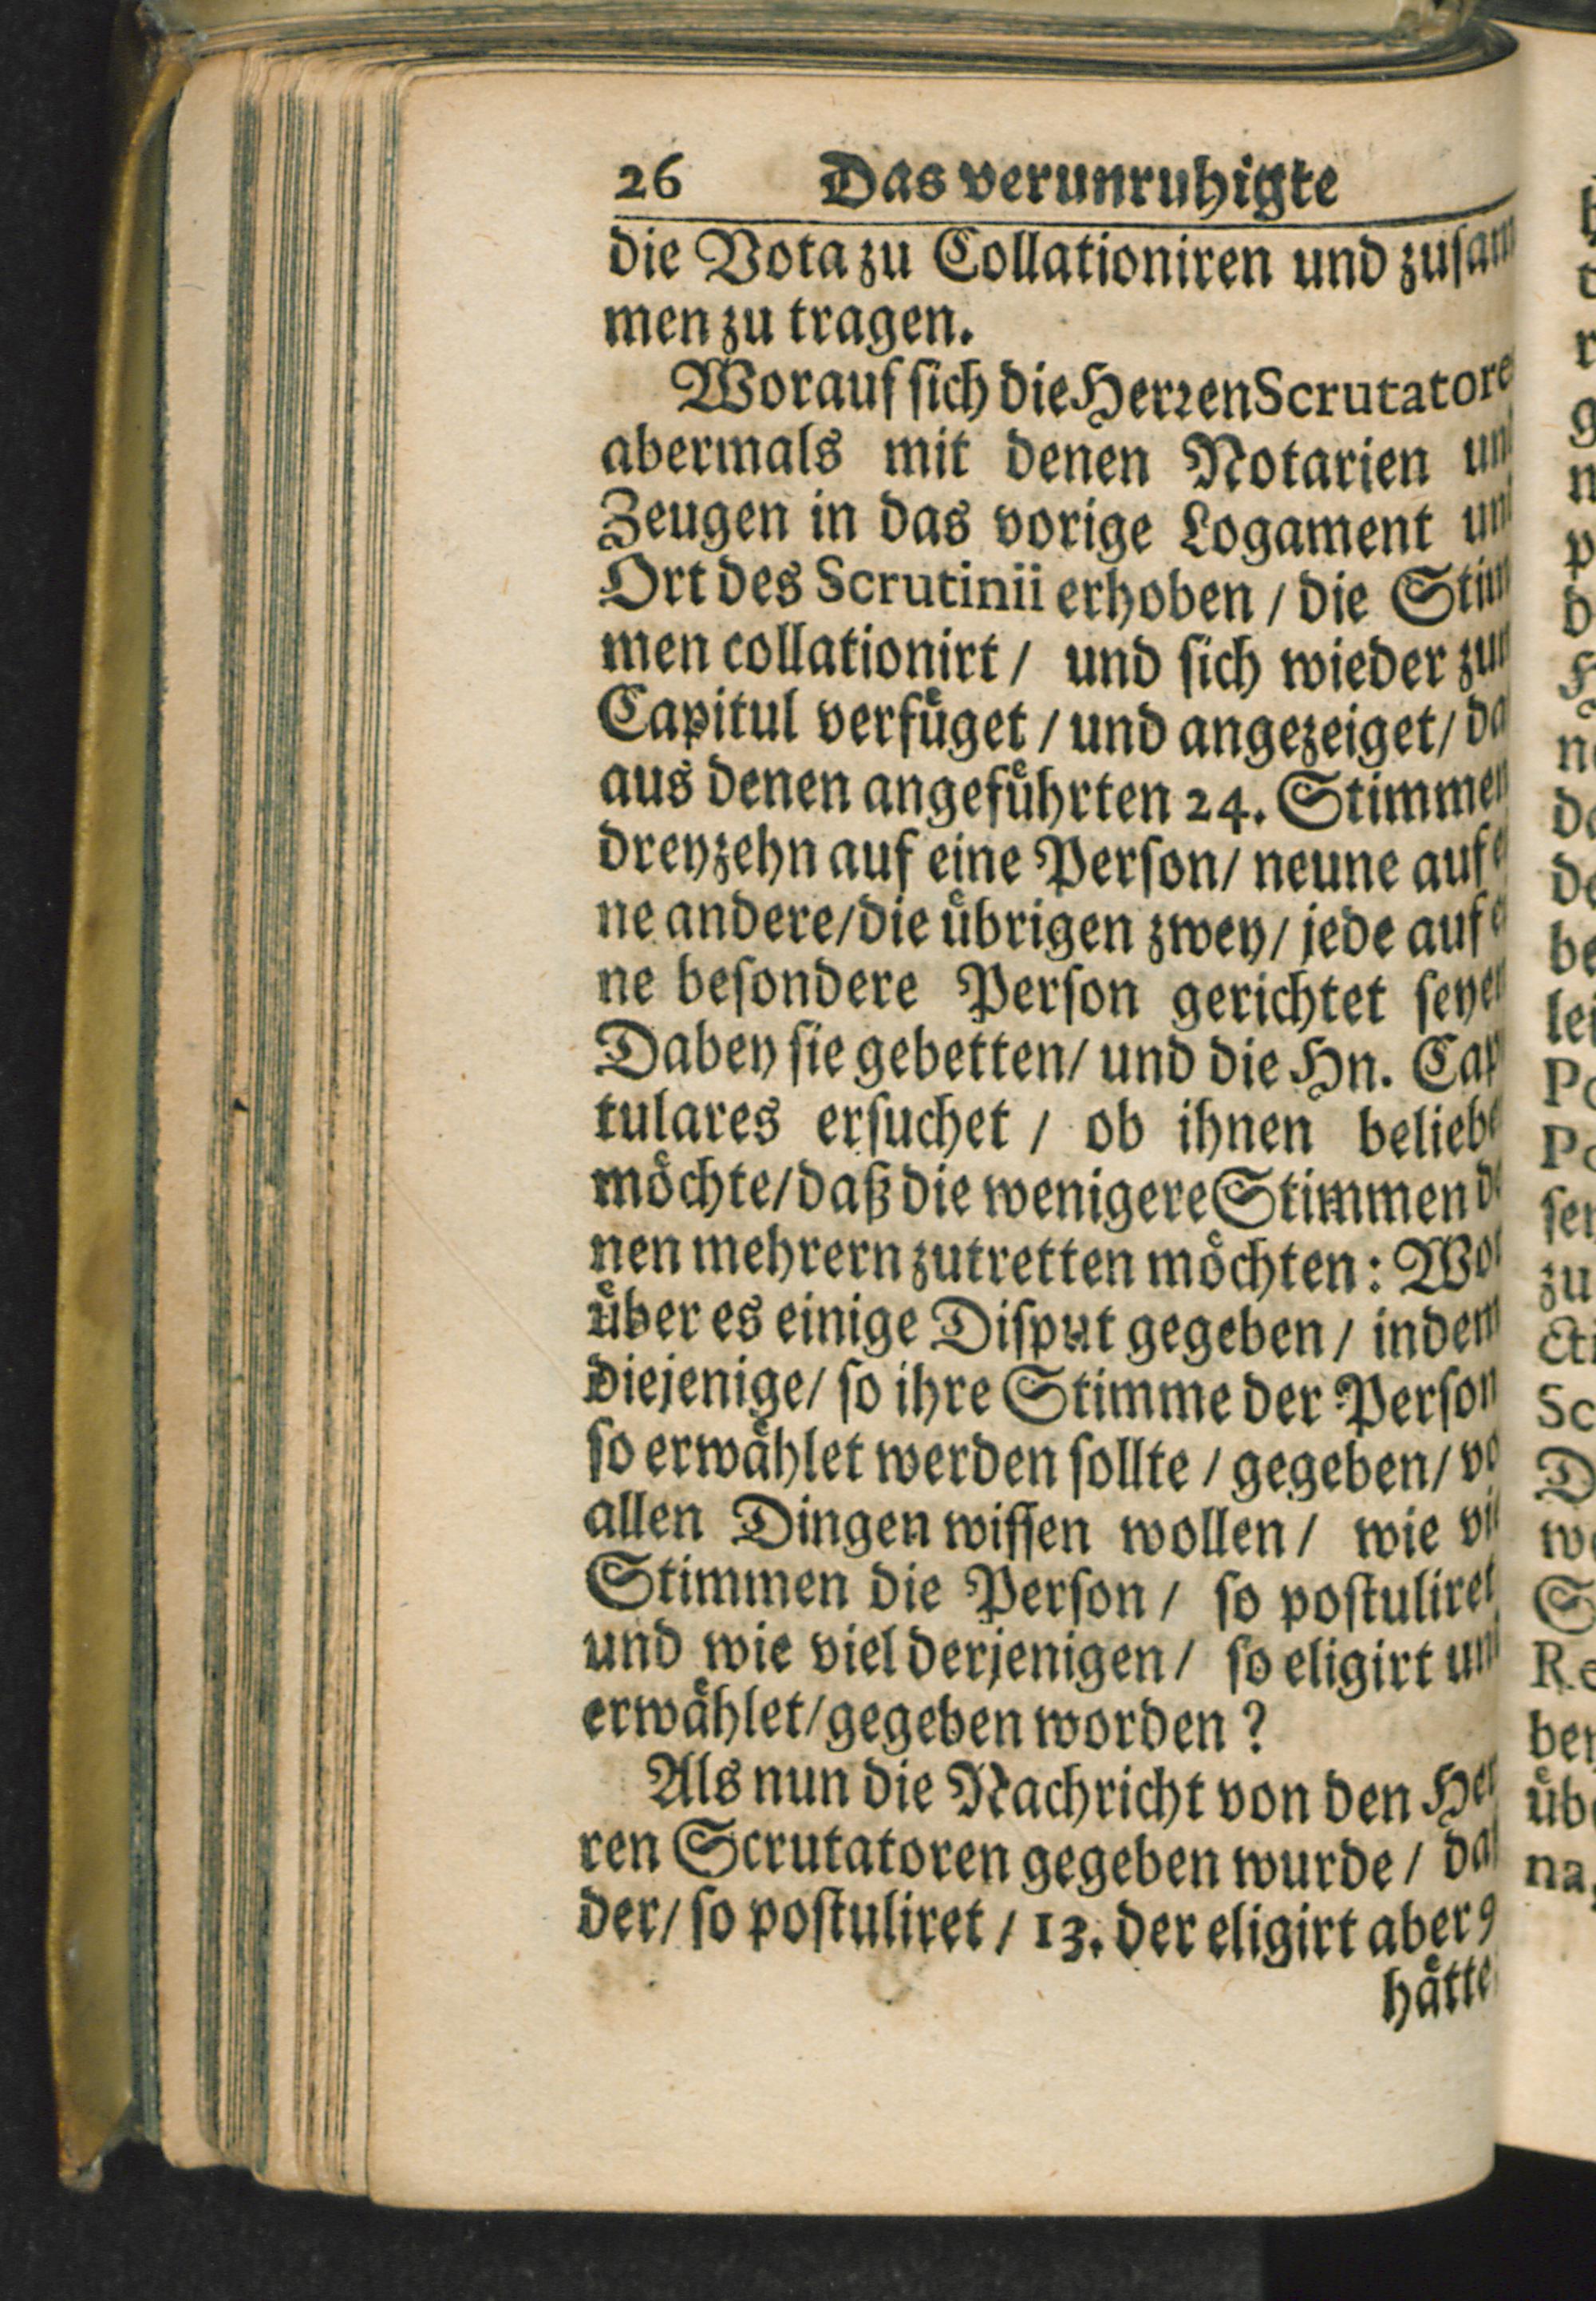 26 Das verunruhigte
die Vota zu Collationiren und zusam
men zu tragen.
Worauf sich die Herren Scrutatores
abermals mit denen Notarien und
Zeugen in das vorige Logament und
Ort des Scrutinii erhoben / die Stim
men collationirt / und sich wieder zum
Capitul verfüget / und angezeiget / da
aus denen angeführten 24. Stimmen
dreyzehn auf eine Person / neune auf e
ne andere / die übrigen zwey / jede auf e
ne besondere Person gerichtet seyen
Dabey sie gebetten / und die Hn. Cap
tulares ersuchet / ob ihnen belieben
möchte / daß die wenigere Stimmen de
nen mehrern zutretten möchten : Wor
über es einige Disput gegeben / indem
diejenige / so ihre Stimme der Person
so erwählet werden sollte / gegeben / vo
allen Dingen wissen wollen / wie vil
Stimmen die Person / so postuliret
und wie viel derjenigen / so eligirt und
erwählet / gegeben worden ?
Als nun die Nachricht von den Her
ren Scrutatoren gegeben wurde / daß
der / so postuliret / 13. der eligirt aber 9
hätte